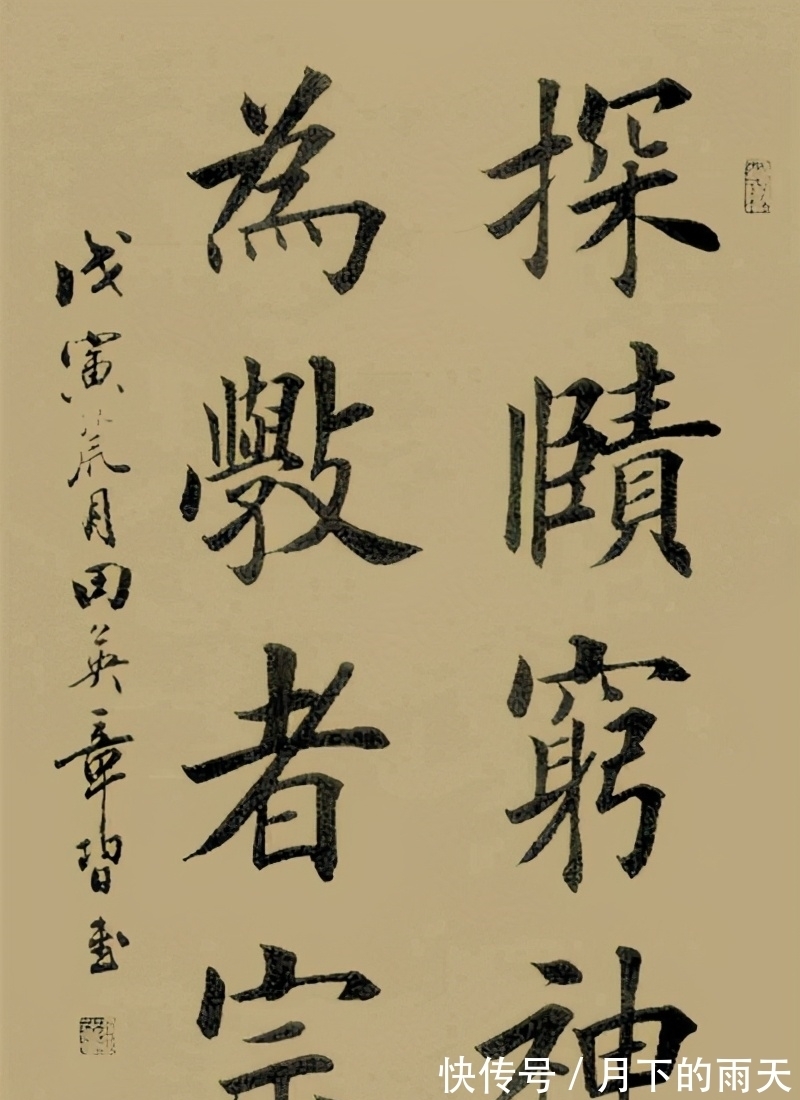 探賾窮神
為斆者宗
戊寅荒月田英章習書
快传号 / 月下的雨天